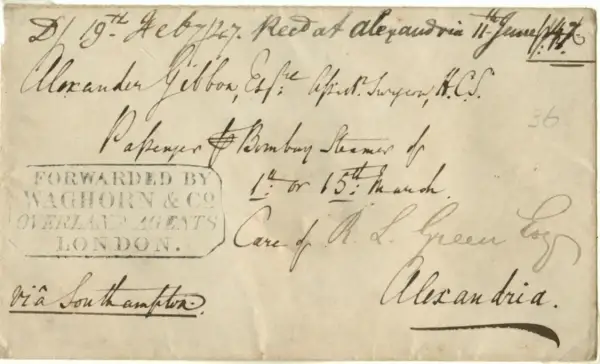 D/ 19th Feby/47. Recd at Alexandria 11th June/47
Alexander Gibbon, Esqre Assist. Surgeon, H.C.S.
36
Passenger Bombay Steamer of
1st or 15th March.
FORWARDED BY
WAGHORN & Co
OVERLAND AGENTS
LONDON.
Care of R. L. Green Esq
viâ Southampton.
Alexandria.